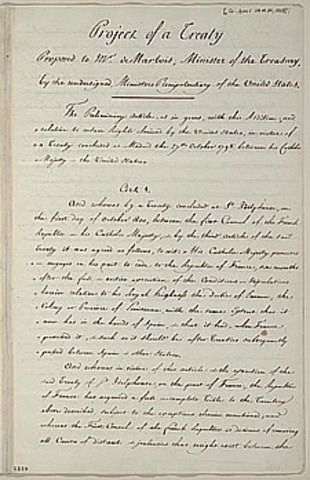 Project of a Treaty
Proposed to Mr. de Marbois, Minister of the Treasury
by the undersigned, Ministers Plenipotentiary of the United States.
The Preliminary Article, as in gross, with the Addition, and
a relation to certain Rights claimed by the United States, in virtue of
a Treaty concluded at Madrid the 27th October 1795, between his Catholic
Majesty & the United States
Art. 1.
And whereas by a Treaty concluded at St. Ildefonso, on
the first day of October 1800, between the first Consul of the French
Republic & his Catholic Majesty, & by the third article of the said
Treaty it was agreed as follows, to wit: His Catholic Majesty promises
& engages on his part to cede to the Republic of France, six months
after the full & entire execution of the Conditions & Stipulations
herein relative to his Royal Highness the duke of Parma, the
Colony or Province of Louisiana with the same Extent that it
now has in the hands of Spain, & that it had, when France
possessed it, & such as it should be after Treaties subsequently
passed between Spain & other States.
And whereas in virtue of this article & the execution of the
said Treaty of St. Ildefonso, on the part of France, the Republic
of France has acquired a full & complete Title to the Territory
above described subject to the exceptions therein mentioned; and
whereas the First Consul of the French Republic is desirous of removing
all Cause of distrust & jealousies that might exist between the